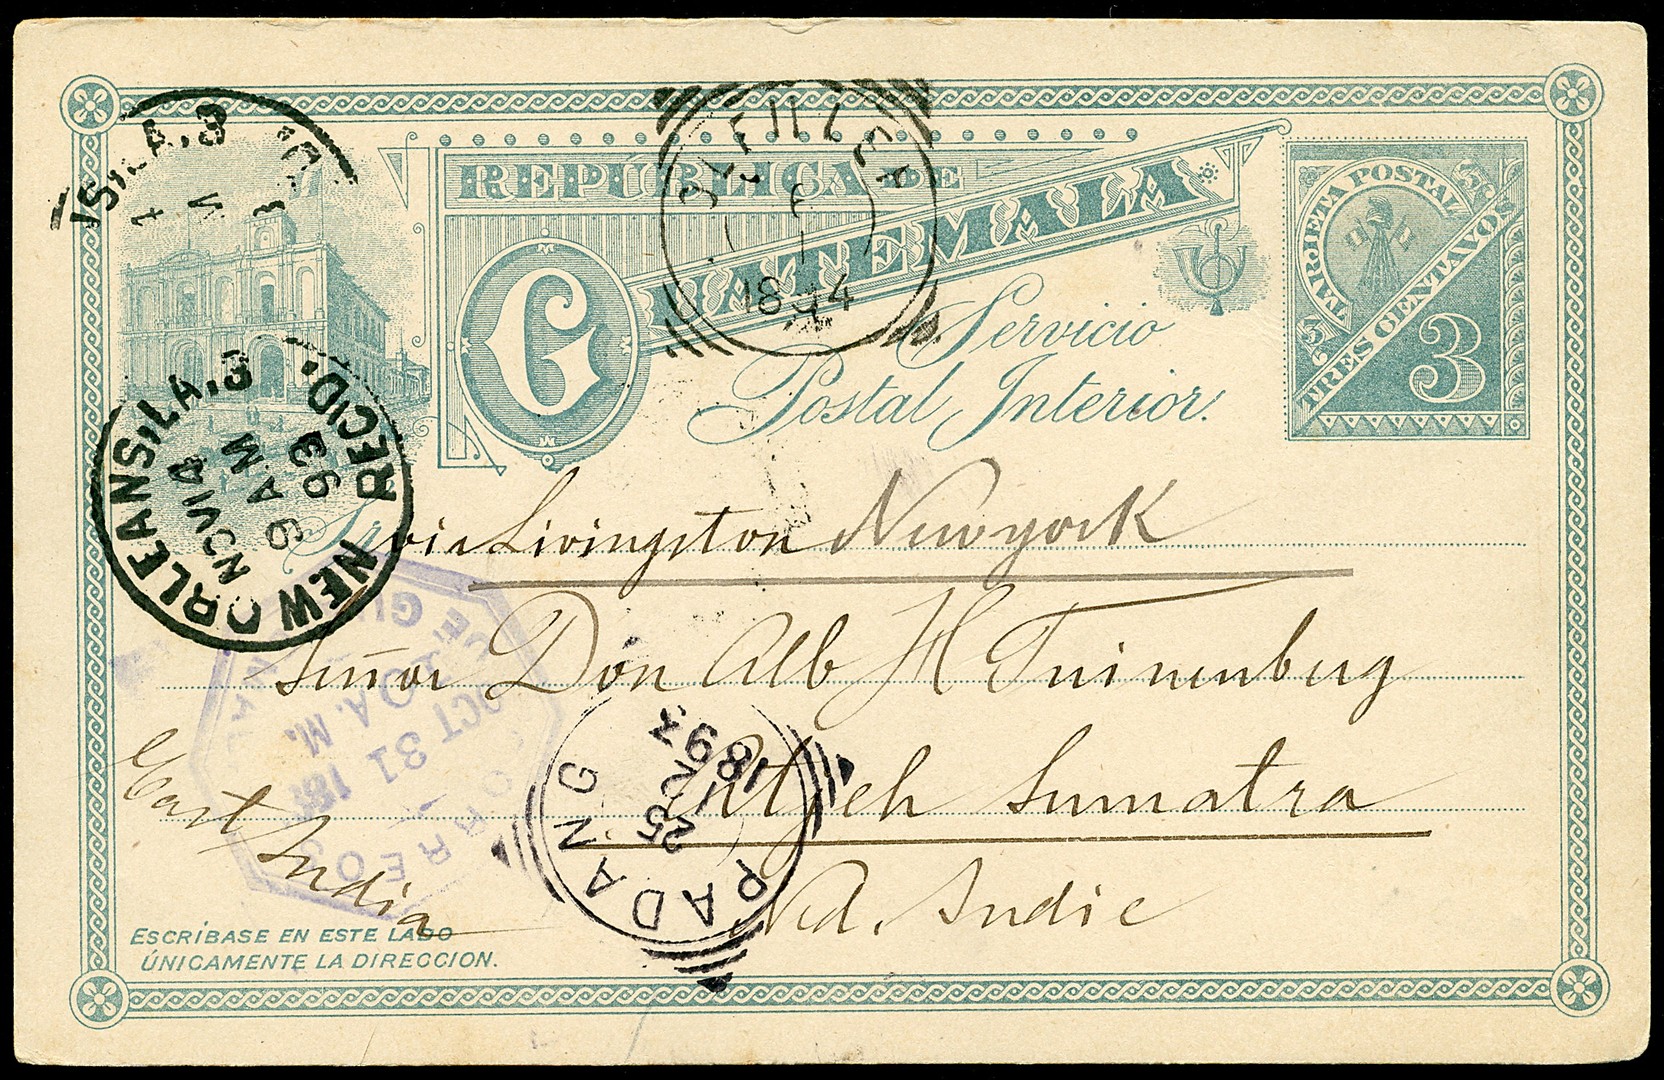 REPÚBLICA DE
GUATEMALA
Servicio
Postal Interior.
TARJETA POSTAL
3
TRES CENTAVOS
3
3
1894
S, LA, 3
NEW ORLEANS, LA, 3
RECID.
NOV 14
9 AM
93
via Livingston Newyork
Señor Don Alb H Tuinenberg
Atjeh Sumatra
Ned. Indie
East India
CORREOS
DE GU
OCT 31 189
10 A. M.
PADANG
25
1893
ESCRÍBASE EN ESTE LADO
ÚNICAMENTE LA DIRECCION.